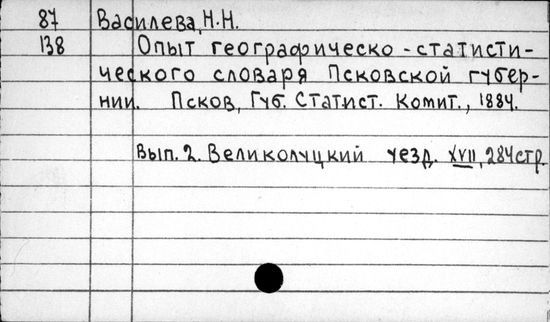 87 Василева, Н.Н.
138 Опыт географическо-статисти-
ческого словаря Псковской губер-
нии. Псков, Губ. Статист. Комит., 1884.
Вып. 2. Великолуцкий уезд. XVII, 284 стр.